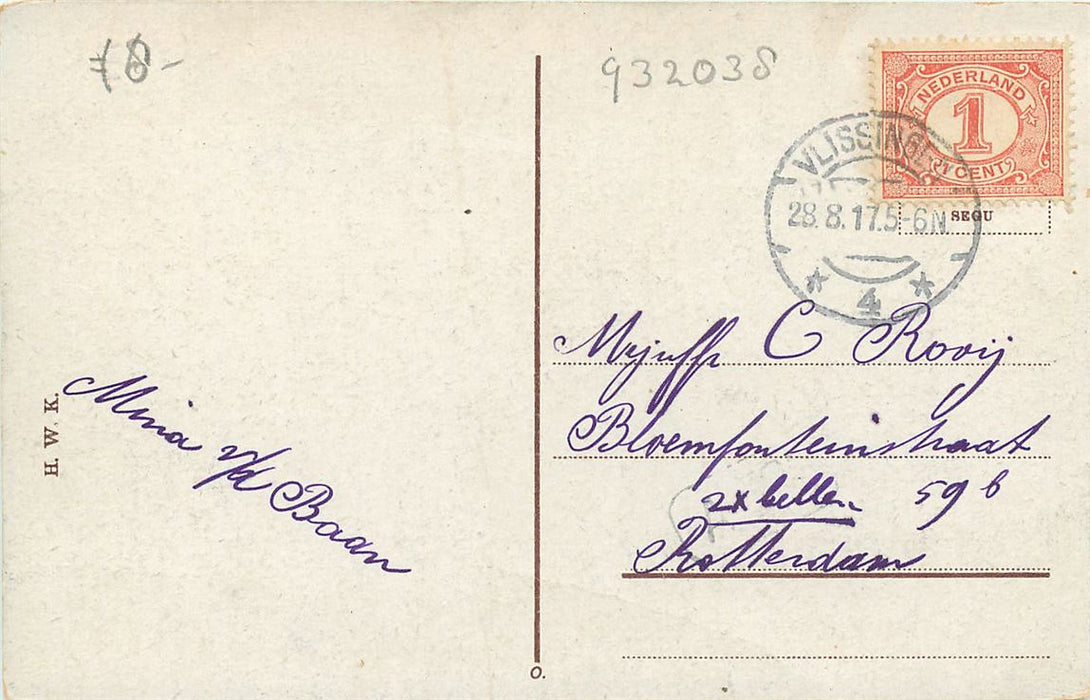 932038
NEDERLAND
1
1 CENT
VLISSINGEN
28.8.17.5-6N
4
SEGU
Mejuffr C Rooij
Bloemfonteinstraat
2x bellen 59 b
Rotterdam
Mina v/d Baan
H. W. K.
O.